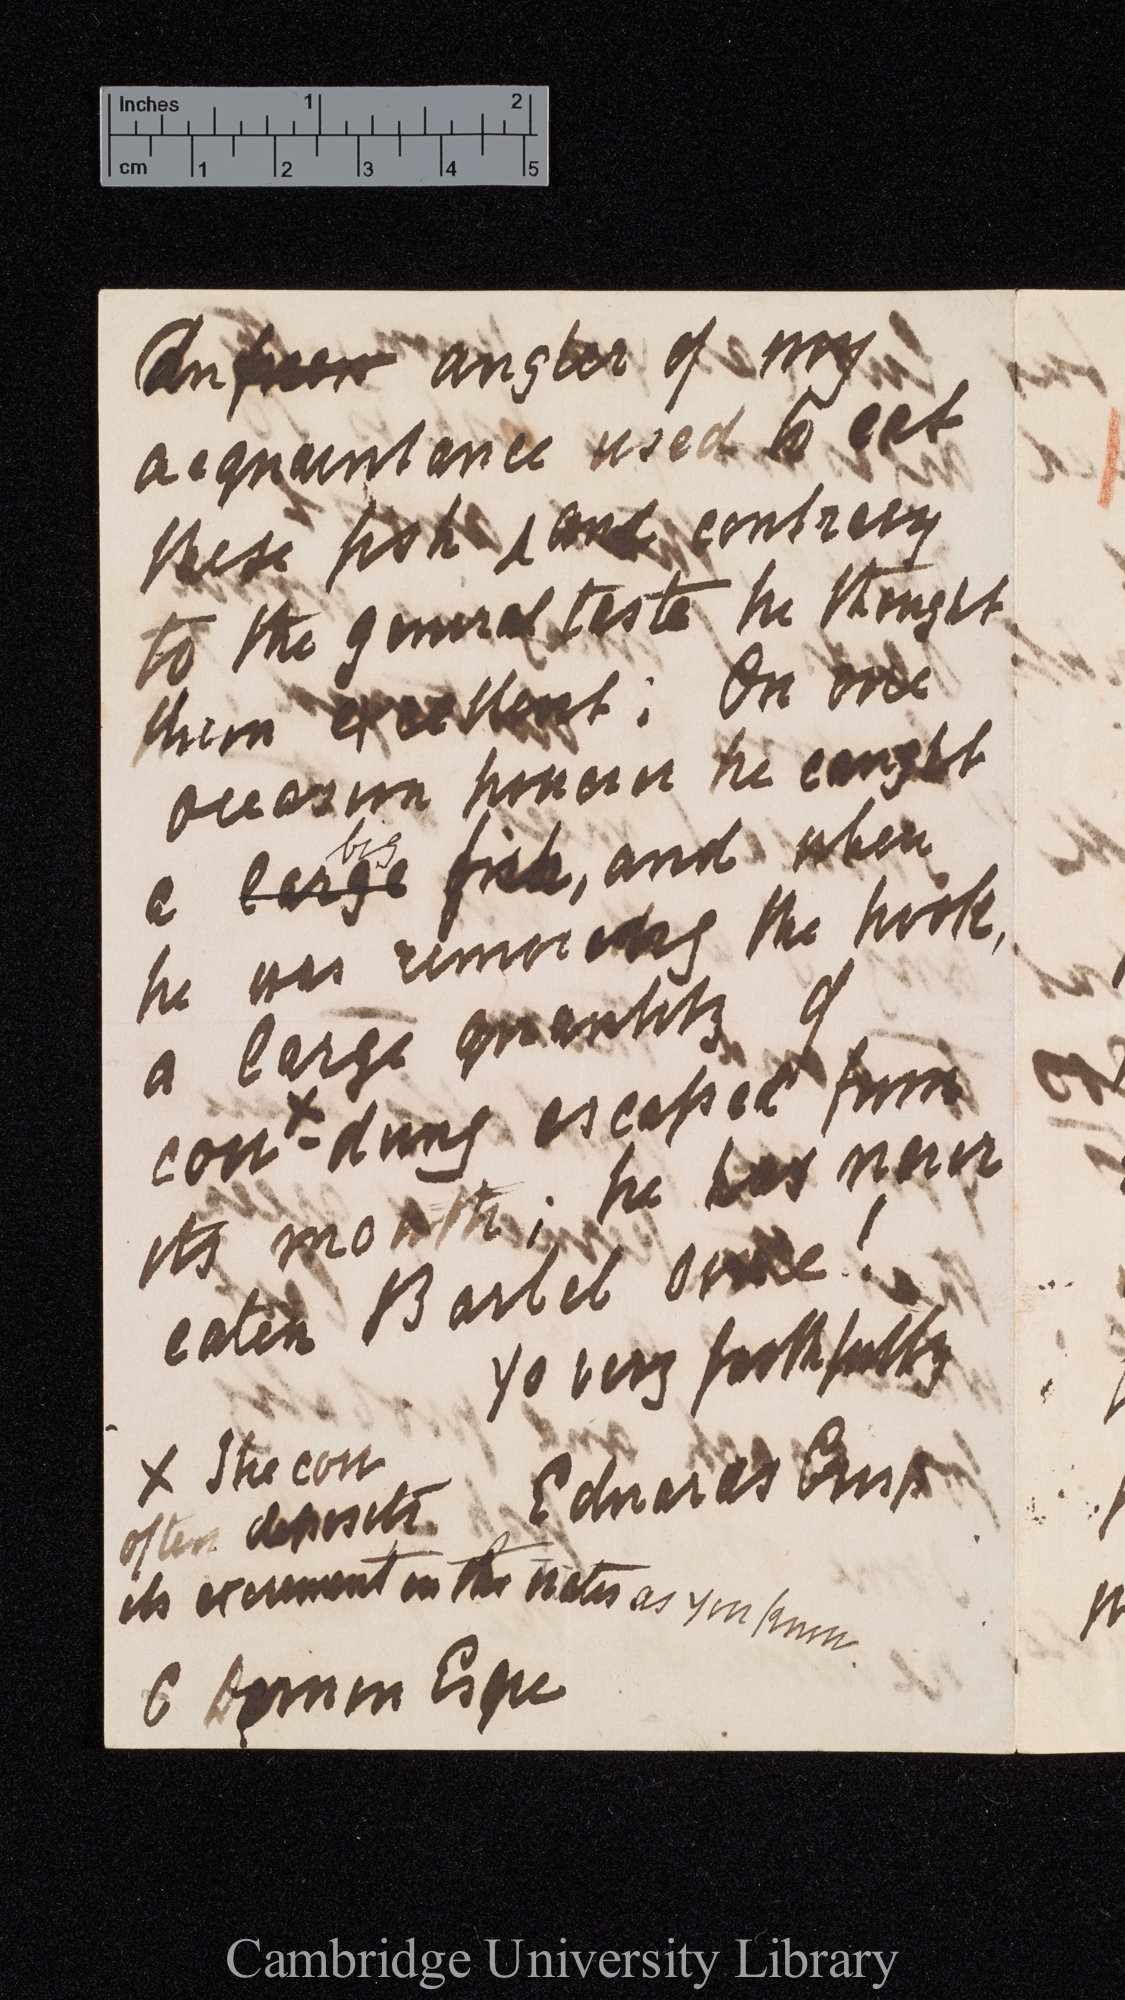 Inches 1 2
cm 1 2 3 4 5
An angler of my
acquaintance used to eat
these fish & and contrary
to the general taste he thought
them excellent; On one
occasion however he caught
big
a large fish, and when
he was removing the hook,
a large quantity of
cow x-dung escaped from
its mouth; he has never
eaten Barbel since!
Yo very faithfully
Edwards Crisp
x The cow
often deposits
its excrement in the water as you know.
C Darwin Esqre
Cambridge University Library